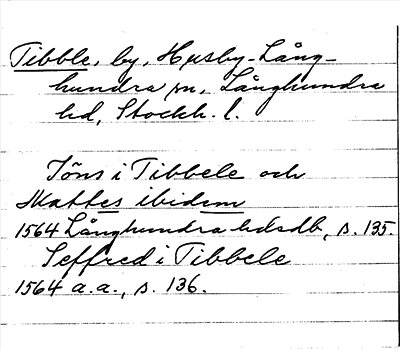 Tibble, by, Husby-Lång-
hundra sn, Långhundra
hd, Stockh. l.
Jöns i Tibbele och
Mattes ibidem
1564 Långhundra hdsdb, s. 135.
Seffred i Tibbele
1564 a.a., s. 136.